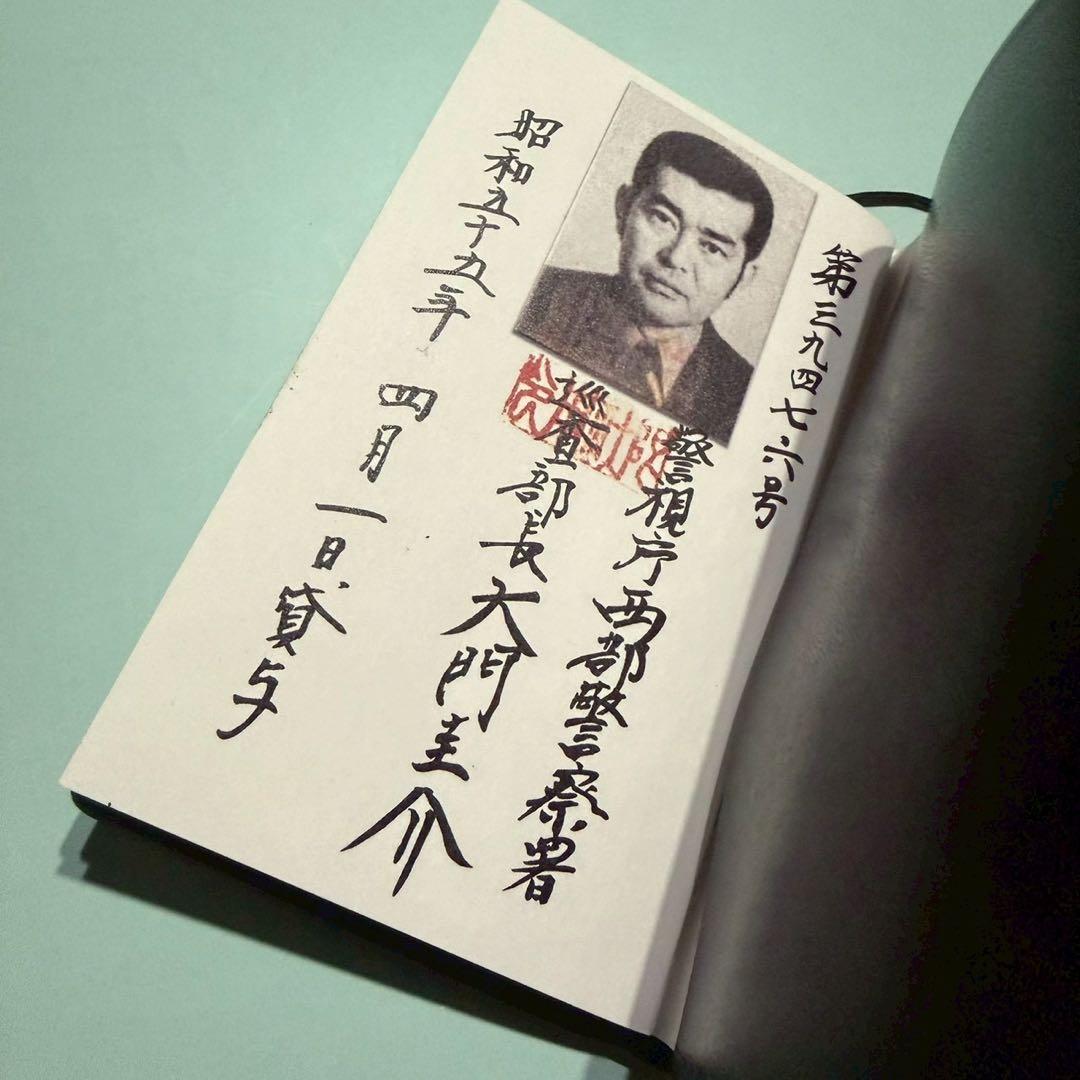 第三九四七六号
警視庁西部警察署
巡査部長大門圭介
昭和五十九年 四月一日貸与